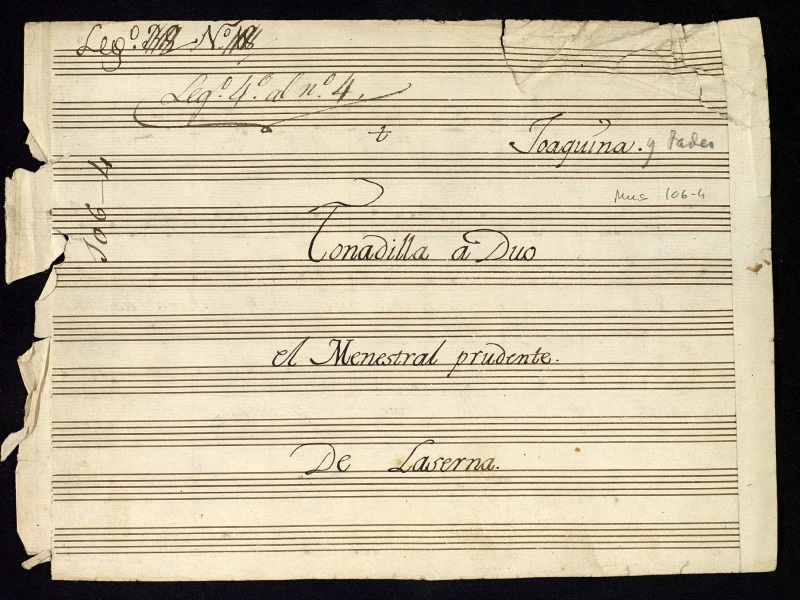 Leg.º Nº
Leg.º 4.º al n.º 4.
Joaquina. y
Mus 106-4
106-4
Tonadilla a Duo
el Menestral prudente.
De Laserna.